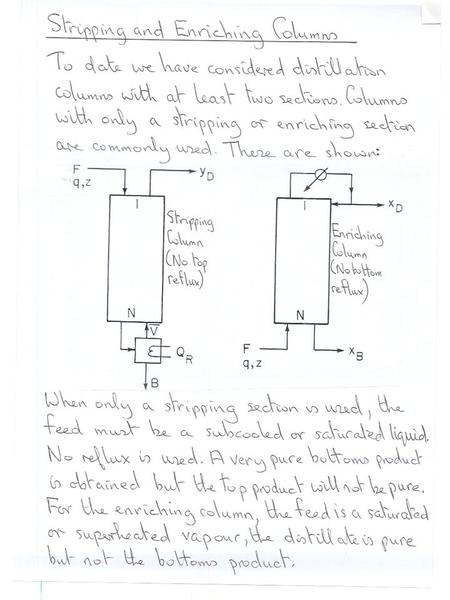 Stripping and Enriching Columns
To date we have considered distillation
columns with at least two sections. Columns
with only a stripping or enriching section
are commonly used. These are shown:
F
q,z
yD
1
Stripping
Column
(No top
reflux)
N
V̅
QR
B
1
xD
Enriching
Column
(No bottom
reflux)
N
F
q,z
xB
When only a stripping section is used, the
feed must be a subcooled or saturated liquid.
No reflux is used. A very pure bottoms product
is obtained but the top product will not be pure.
For the enriching column, the feed is a saturated
or superheated vapour, the distillate is pure
but not the bottoms product.